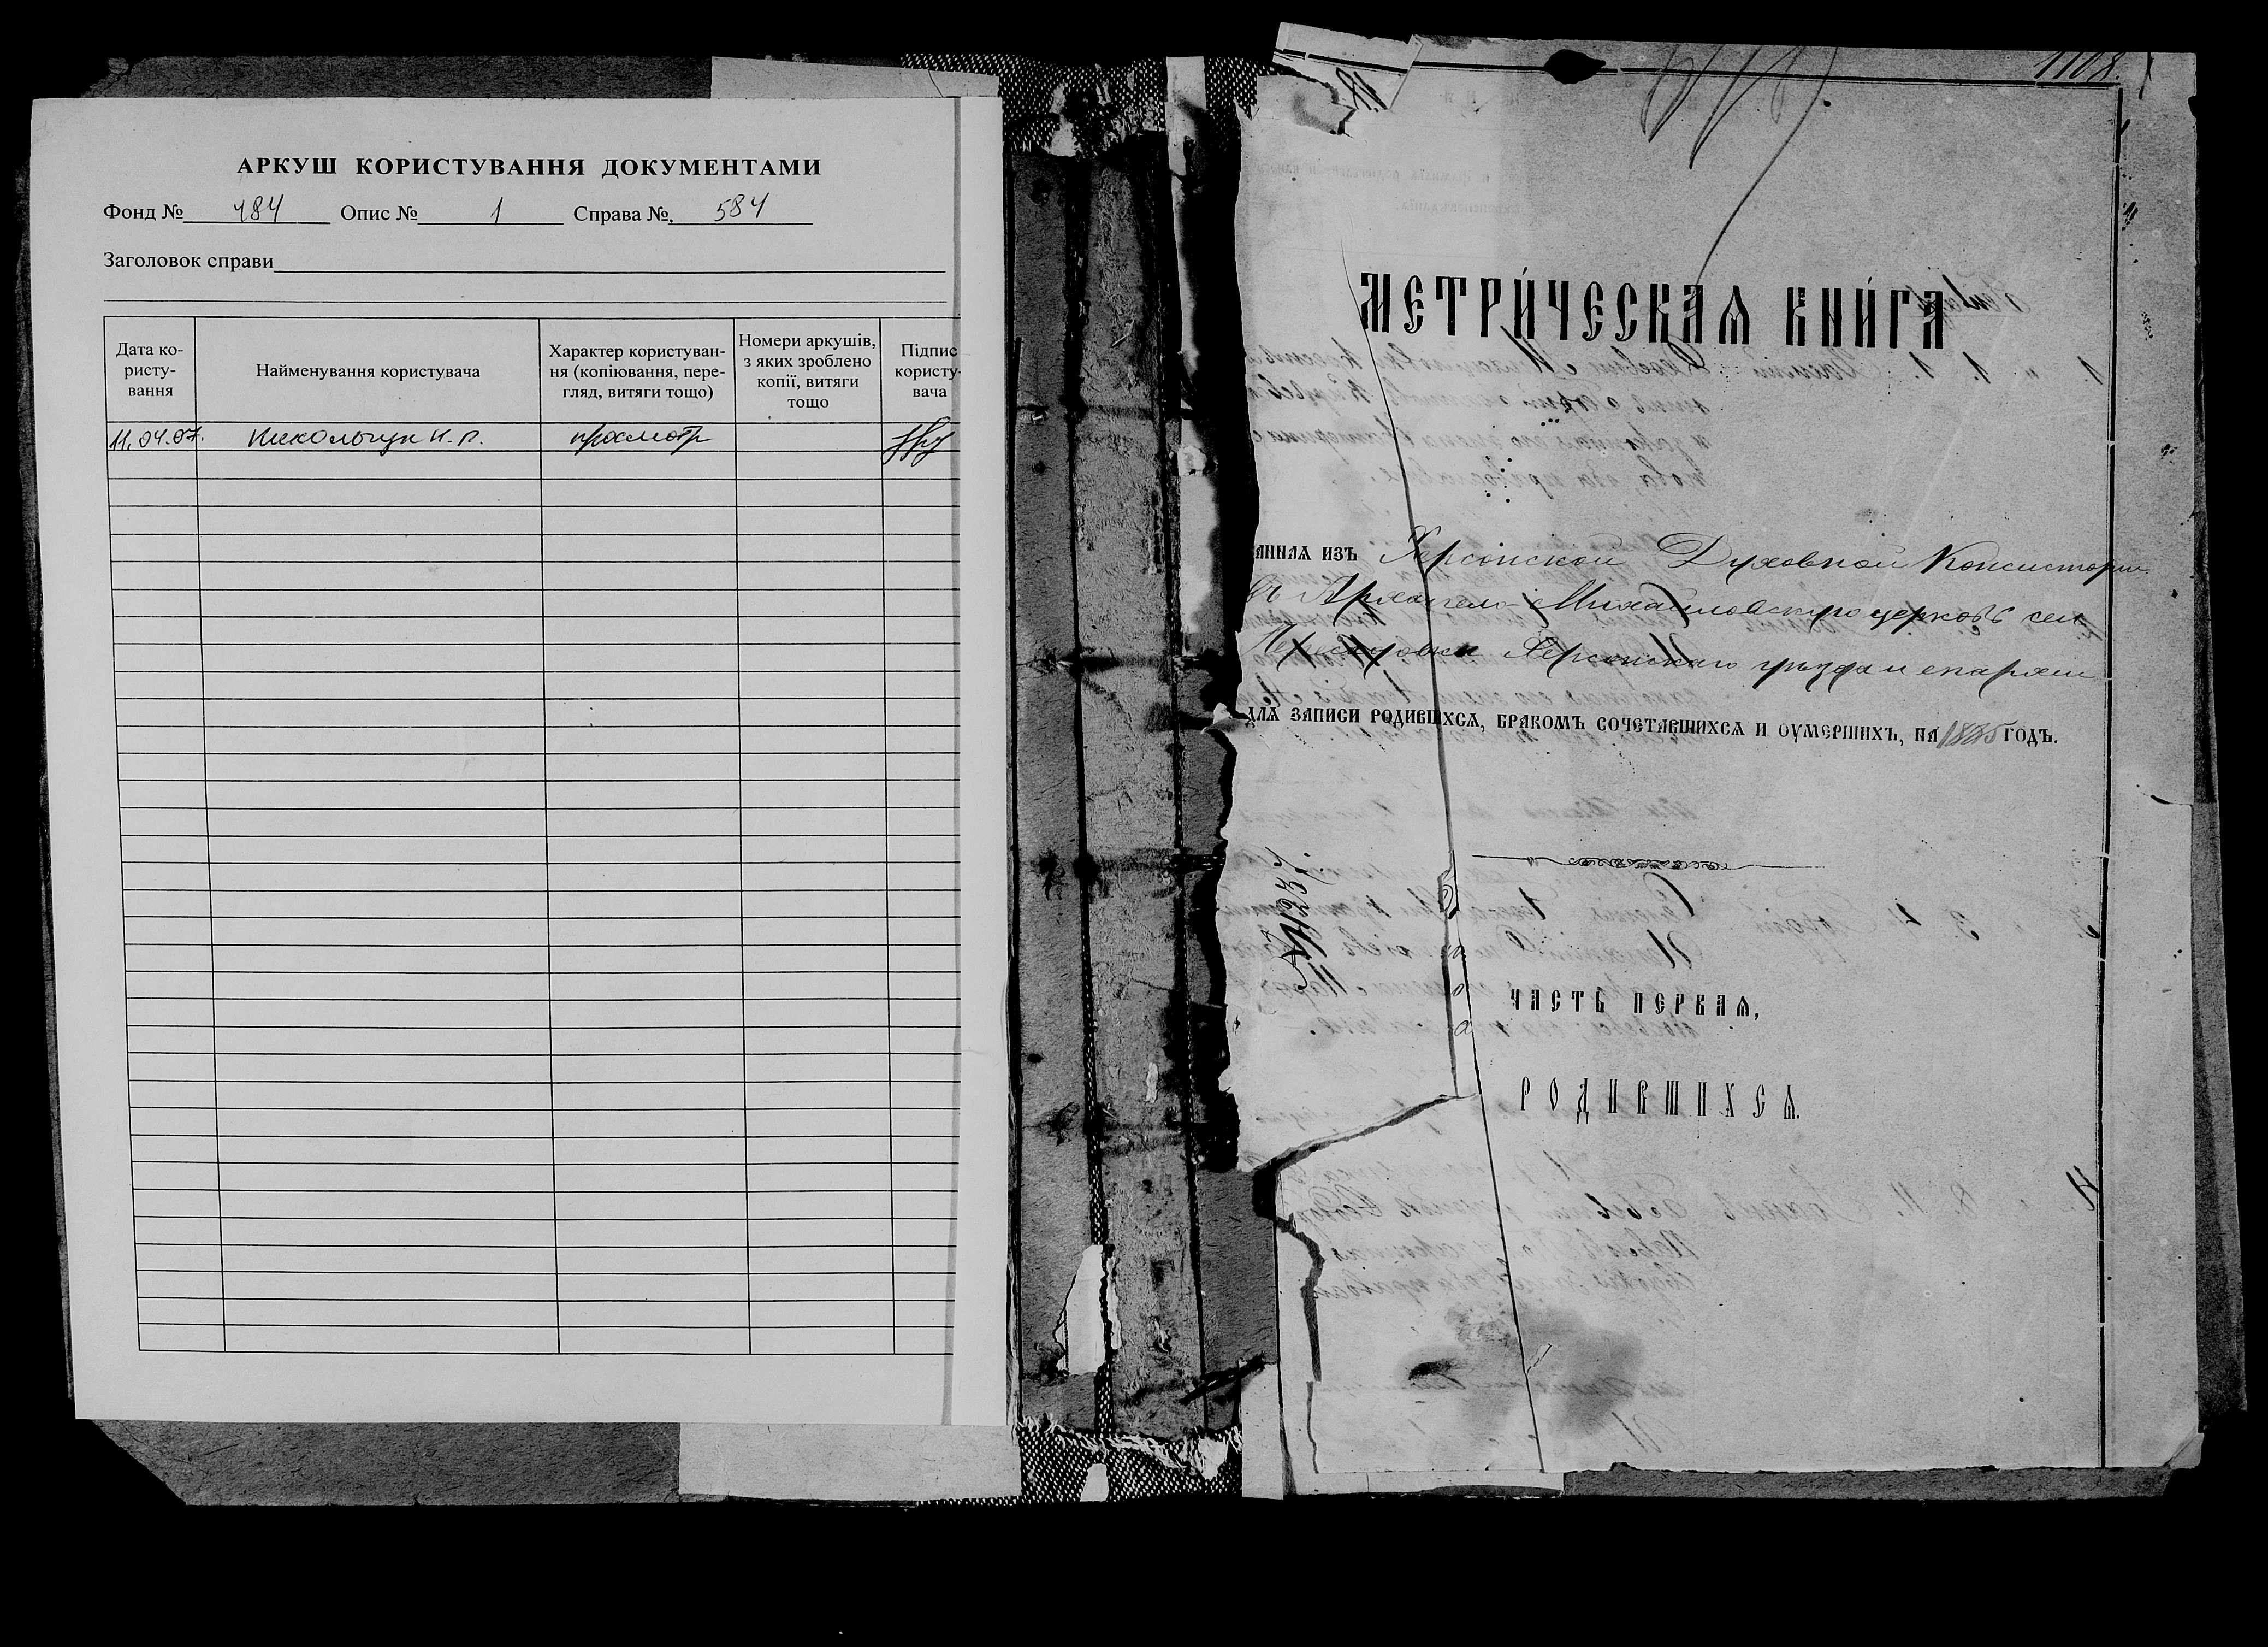 АРКУШ КОРИСТУВАННЯ ДОКУМЕНТАМИ
Фонд № 484 Опис № 1 Справа № 584
Заголовок справи
Дата ко-
ристу-
вання
Найменування користувача
Характер користуван-
ня (копіювання, пере-
гляд, витяги тощо)
Номери аркушів,
з яких зроблено
копії, витяги
тощо
Підпис
користу-
вача
11.04.07. просмотр
1108.
МЕТРИ́ЧЕСКАѦ КНИ́ГА
АННАѦ ИЗЪ Херсонской Духовной Консисторіи
въ Архангело-Михайловскую церковь сел.
Херсонскаго уѣзда и епархіи
ДЛѦ ЗАПИСИ РОДИВШИХСѦ, БРАКОМЪ СОЧЕТАВШИХСѦ И ОУМЕРШИХЪ, НА 1885 ГОДЪ.
ЧАСТЬ ПЕРВАѦ,
РОДИВШИХСѦ.